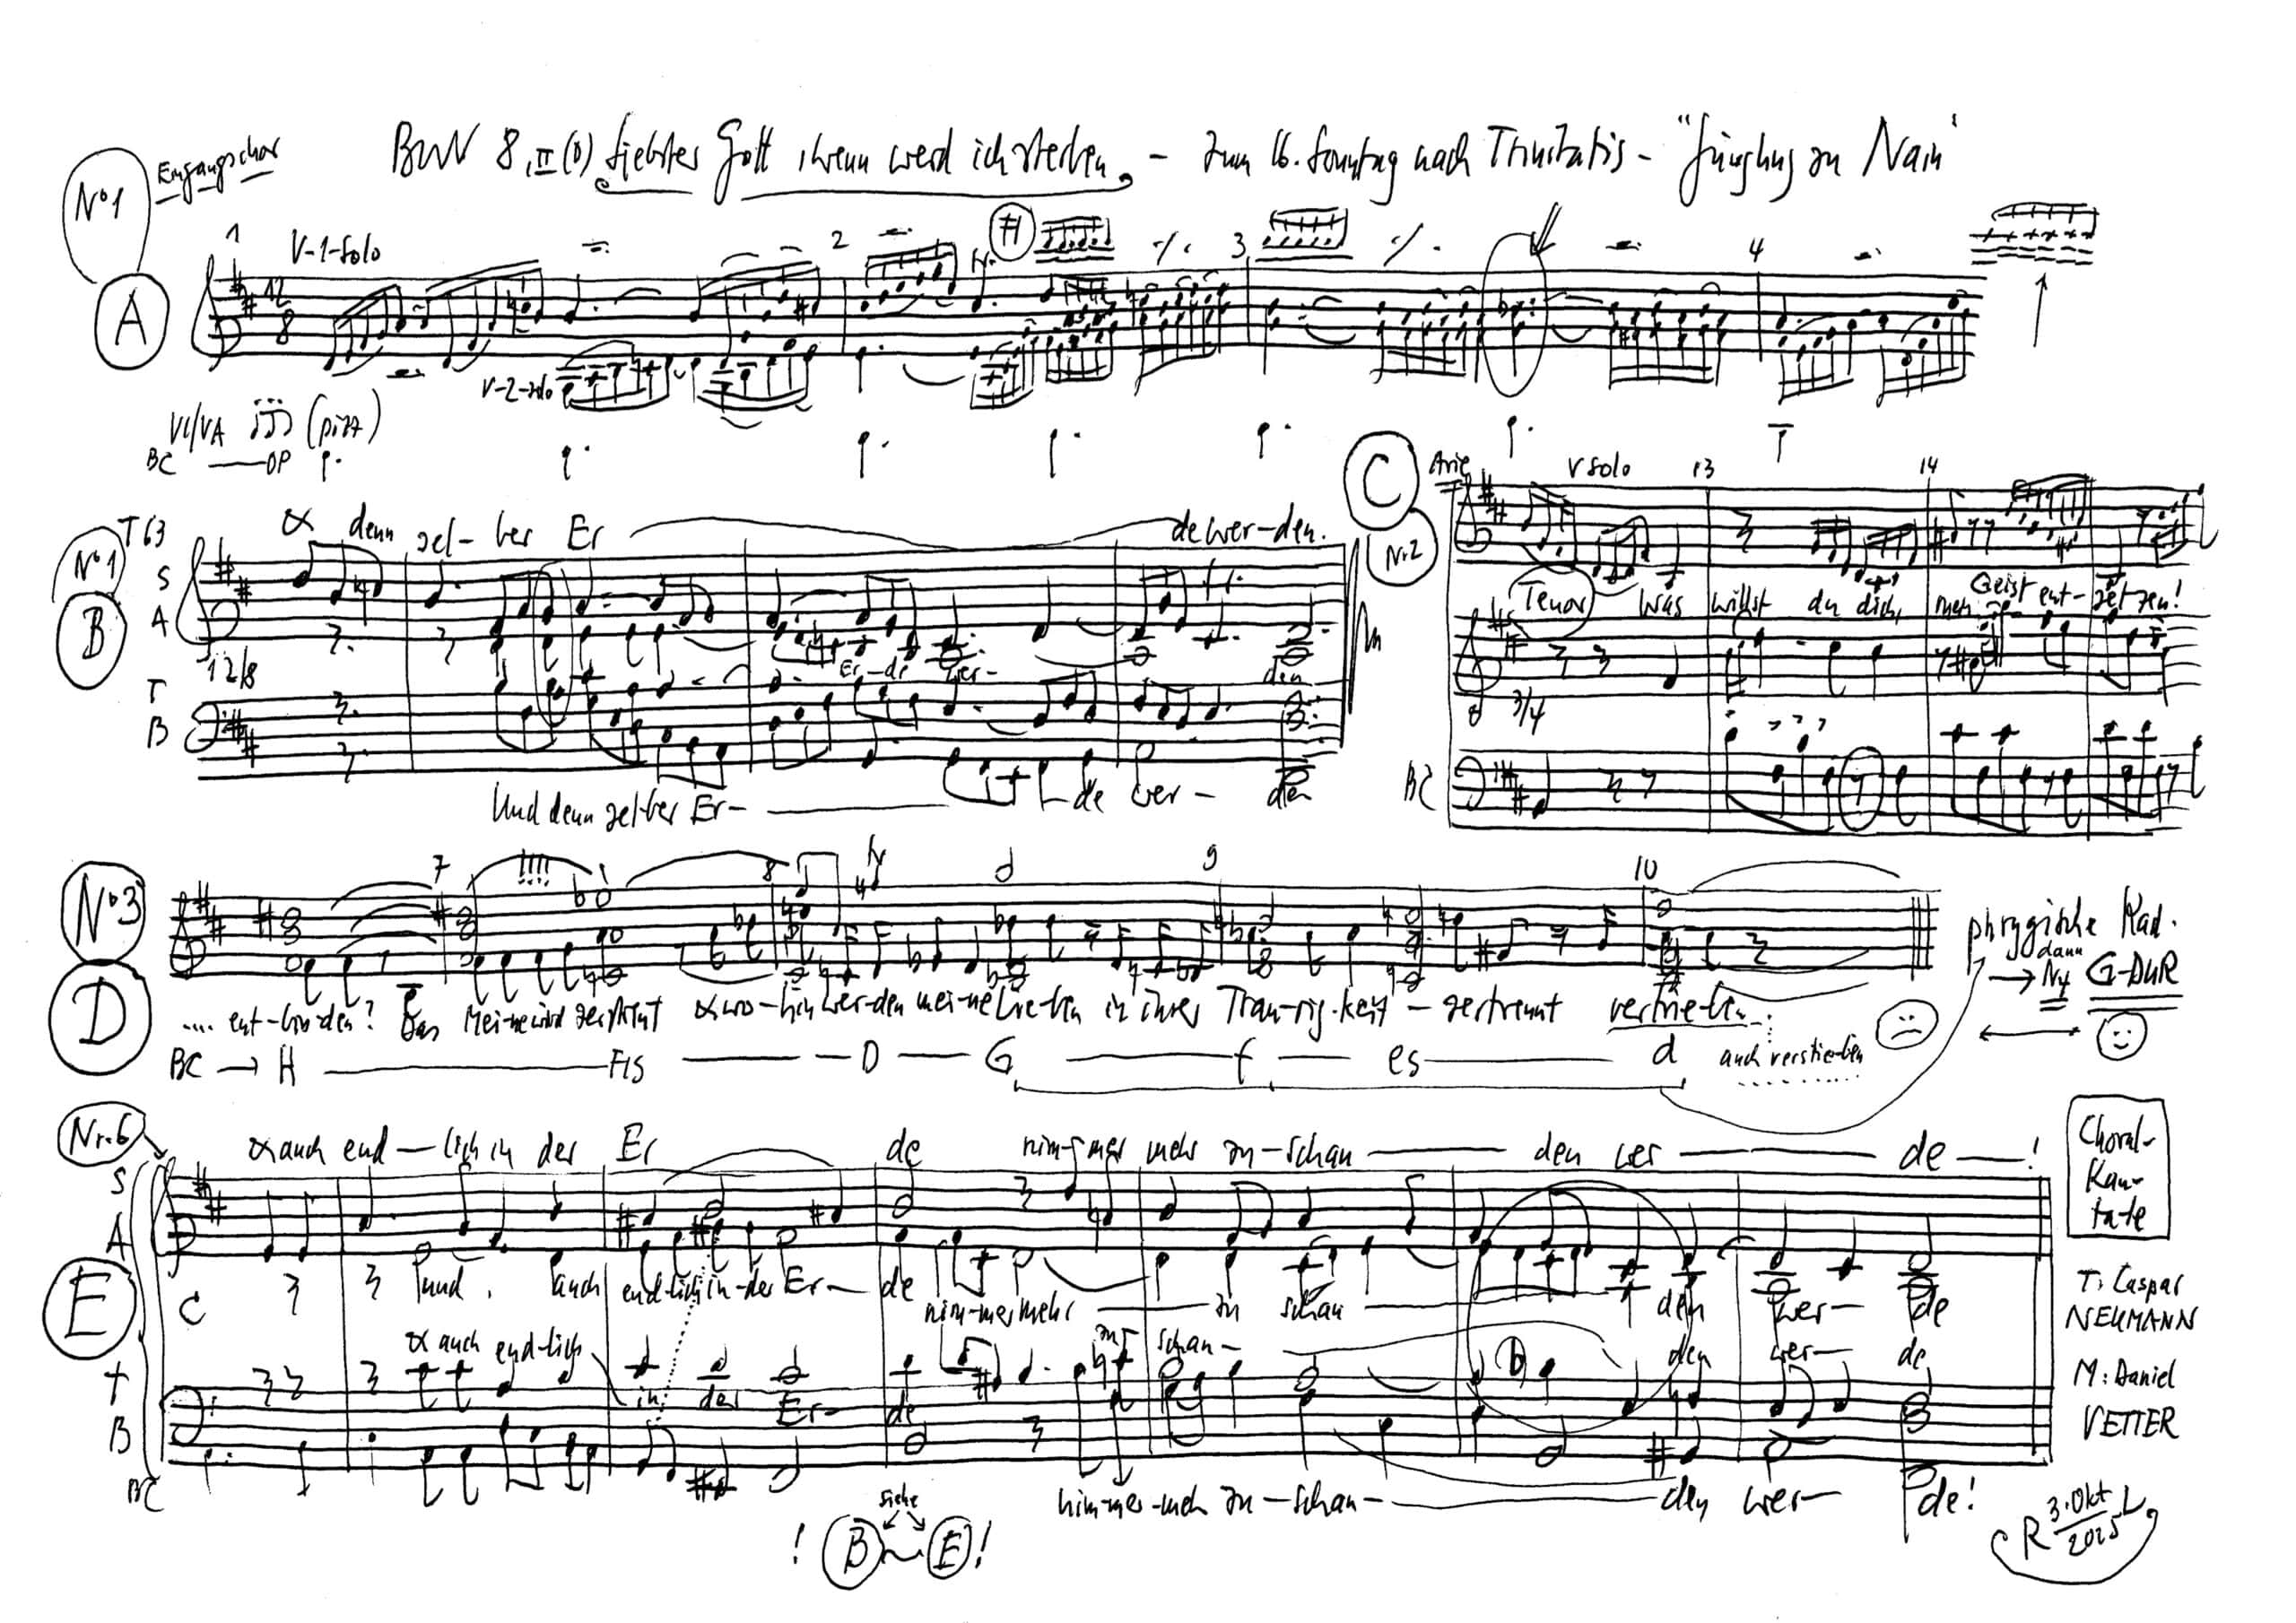 BWV 8, II (D) Liebster Gott, wenn werd ich sterben, - zum 16. Sonntag nach Trinitatis - "Jüngling zu Nain"
No 1 Eingangschor
A
1 V-1-Solo 2 3 4
12/8
V-2-solo
VI/VA (pizz)
BC OP
No 1 T 63 & denn sel-ber Er de wer-den.
B
S
A
Er-de wer- den
12/8
T
B
Und denn sel-ber Er- de wer- den
C Arie V solo 13 14
Nr. 2
Tenor Was willst du dich, mein Geist ent- set zen!
3/4
BC
No 3 7 !!!! 8 9 10
D
.... ent-bin-den? Das Mei-ne wird zerstreut & wo-hin wer-den mei-ne Lie-ben in ihrer Trau-rig-keit - zertrennt vertrie-ben
BC → H FIS D G f es d auch verstie-ben
phrygische Kad.
dann
→ N4 G-DUR
Nr. 6 & auch end-lich in der Er de nim-mer mehr zu-schan den wer de !
S
A
und auch end-lich in-der Er- de nim-mer mehr zu schan den wer- de
E C
& auch end-lich in der Er- de zu schan- den wer- de
T
B
BC
nim-mer-meh zu-schan- den wer- de!
siehe
! B E !
Choral-
Kan-
tate
T: Caspar
NEUMANN
M: Daniel
VETTER
R 3. Okt L
2025